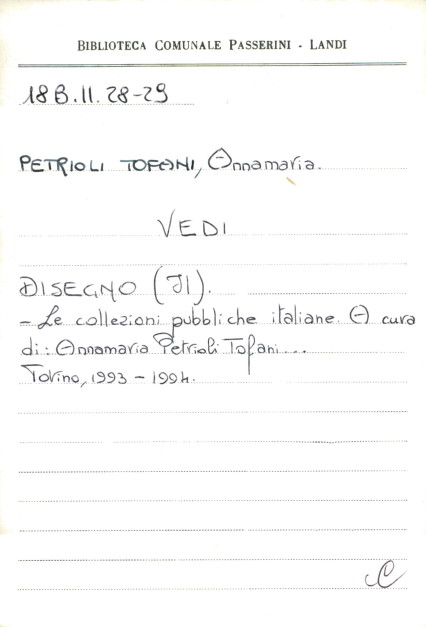 BIBLIOTECA COMUNALE PASSERINI - LANDI
18 B.II.28-29
PETRIOLI TOFANI, Annamaria.
VEDI
DISEGNO (Il).
- Le collezioni pubbliche italiane. A cura
di: Annamaria Petrioli Tofani...
Torino, 1993 - 1994.
C